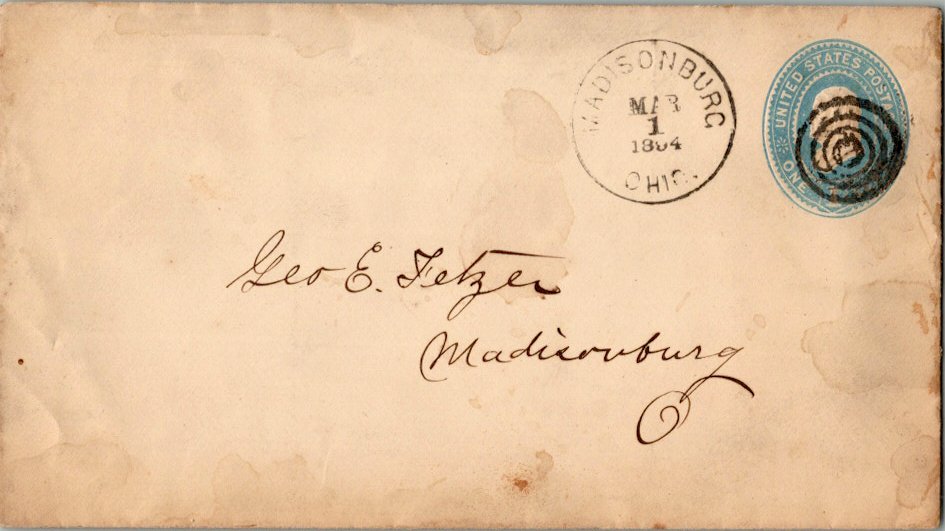 MADISONBURG
MAR
1
1894
OHIO.
UNITED STATES POSTA
ONE
Geo E. Fetzer
Madisonburg
O